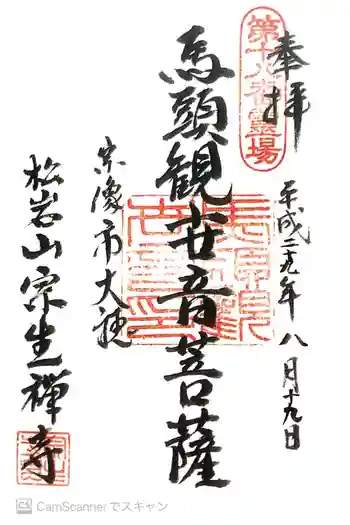 奉拝
第十八番霊場
平成二十九年八月十九日
馬頭観世音菩薩
宗像市大穂
松岩山宗生禅寺
CamScannerでスキャン